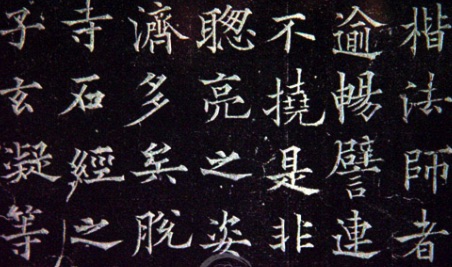 楷法師者
逾暢譬連
不撓是非
聦亮之姿
濟多矣脫
寺石經之
子玄凝等